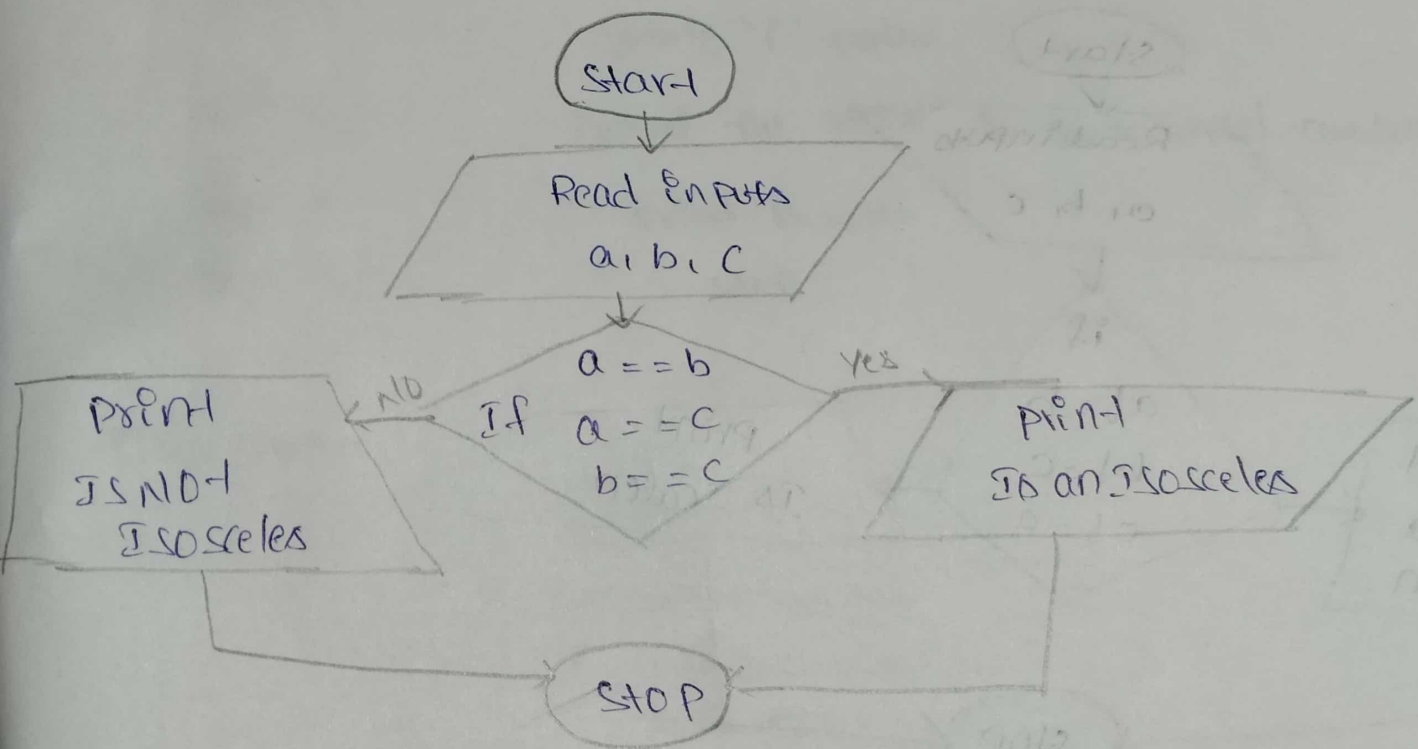 Start
Read inputs
a, b, c
If
a == b
a == c
b == c
NO
yes
print
IS NOt
Isosceles
print
Is an Isosceles
Stop